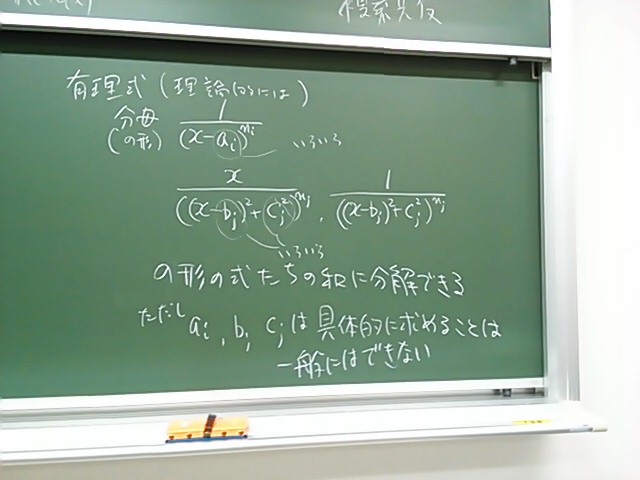 複素共役
有理式(理論的には)
分母(の形) 1/(x-a_i)^{n_i} いろいろ
x/((x-b_j)^2+c_j^2)^{n_j} , 1/((x-b_j)^2+c_j^2)^{n_j}
いろいろ
の形の式たちの和に分解できる
ただし a_i, b_j c_j は具体的に求めることは
一般にはできない